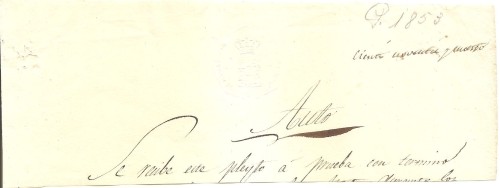 P. 1853
ciento noventa y cuatro
Auto
Se recibe este pleyto á prueba con termino